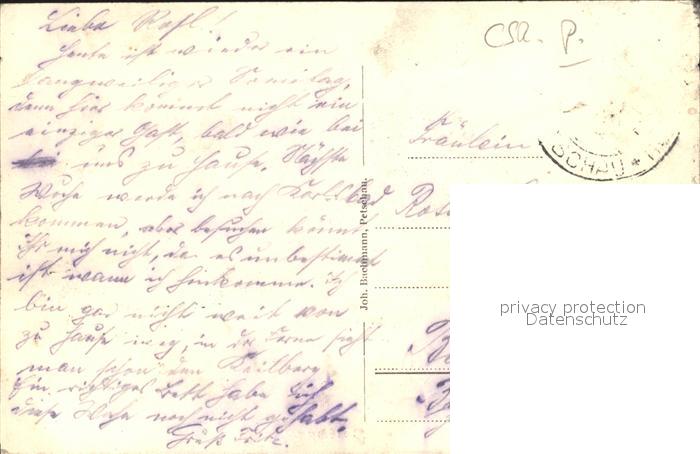 Liebe Resl!
Heute ist wieder ein
langweiliger Sonntag,
denn hier kommt nicht ein
einziger Gast, bald wie bei
uns zu Hause. Nächste
Woche werde ich nach Karlsbad
kommen, aber besuchen könnt
ihr mich nicht, da es unbestimmt
ist wann ich hinkomme. Ich
bin gar nicht weit von
zu Hause weg, in der Ferne sieht
man schon den Keilberg
Ein richtiges Bett habe ich
diese Woche noch nicht gehabt.
Gruß Fritz.
Joh. Bachmann, Petschau.
ČSR. P.
SCHAU *
Fräulein
privacy protection
Datenschutz